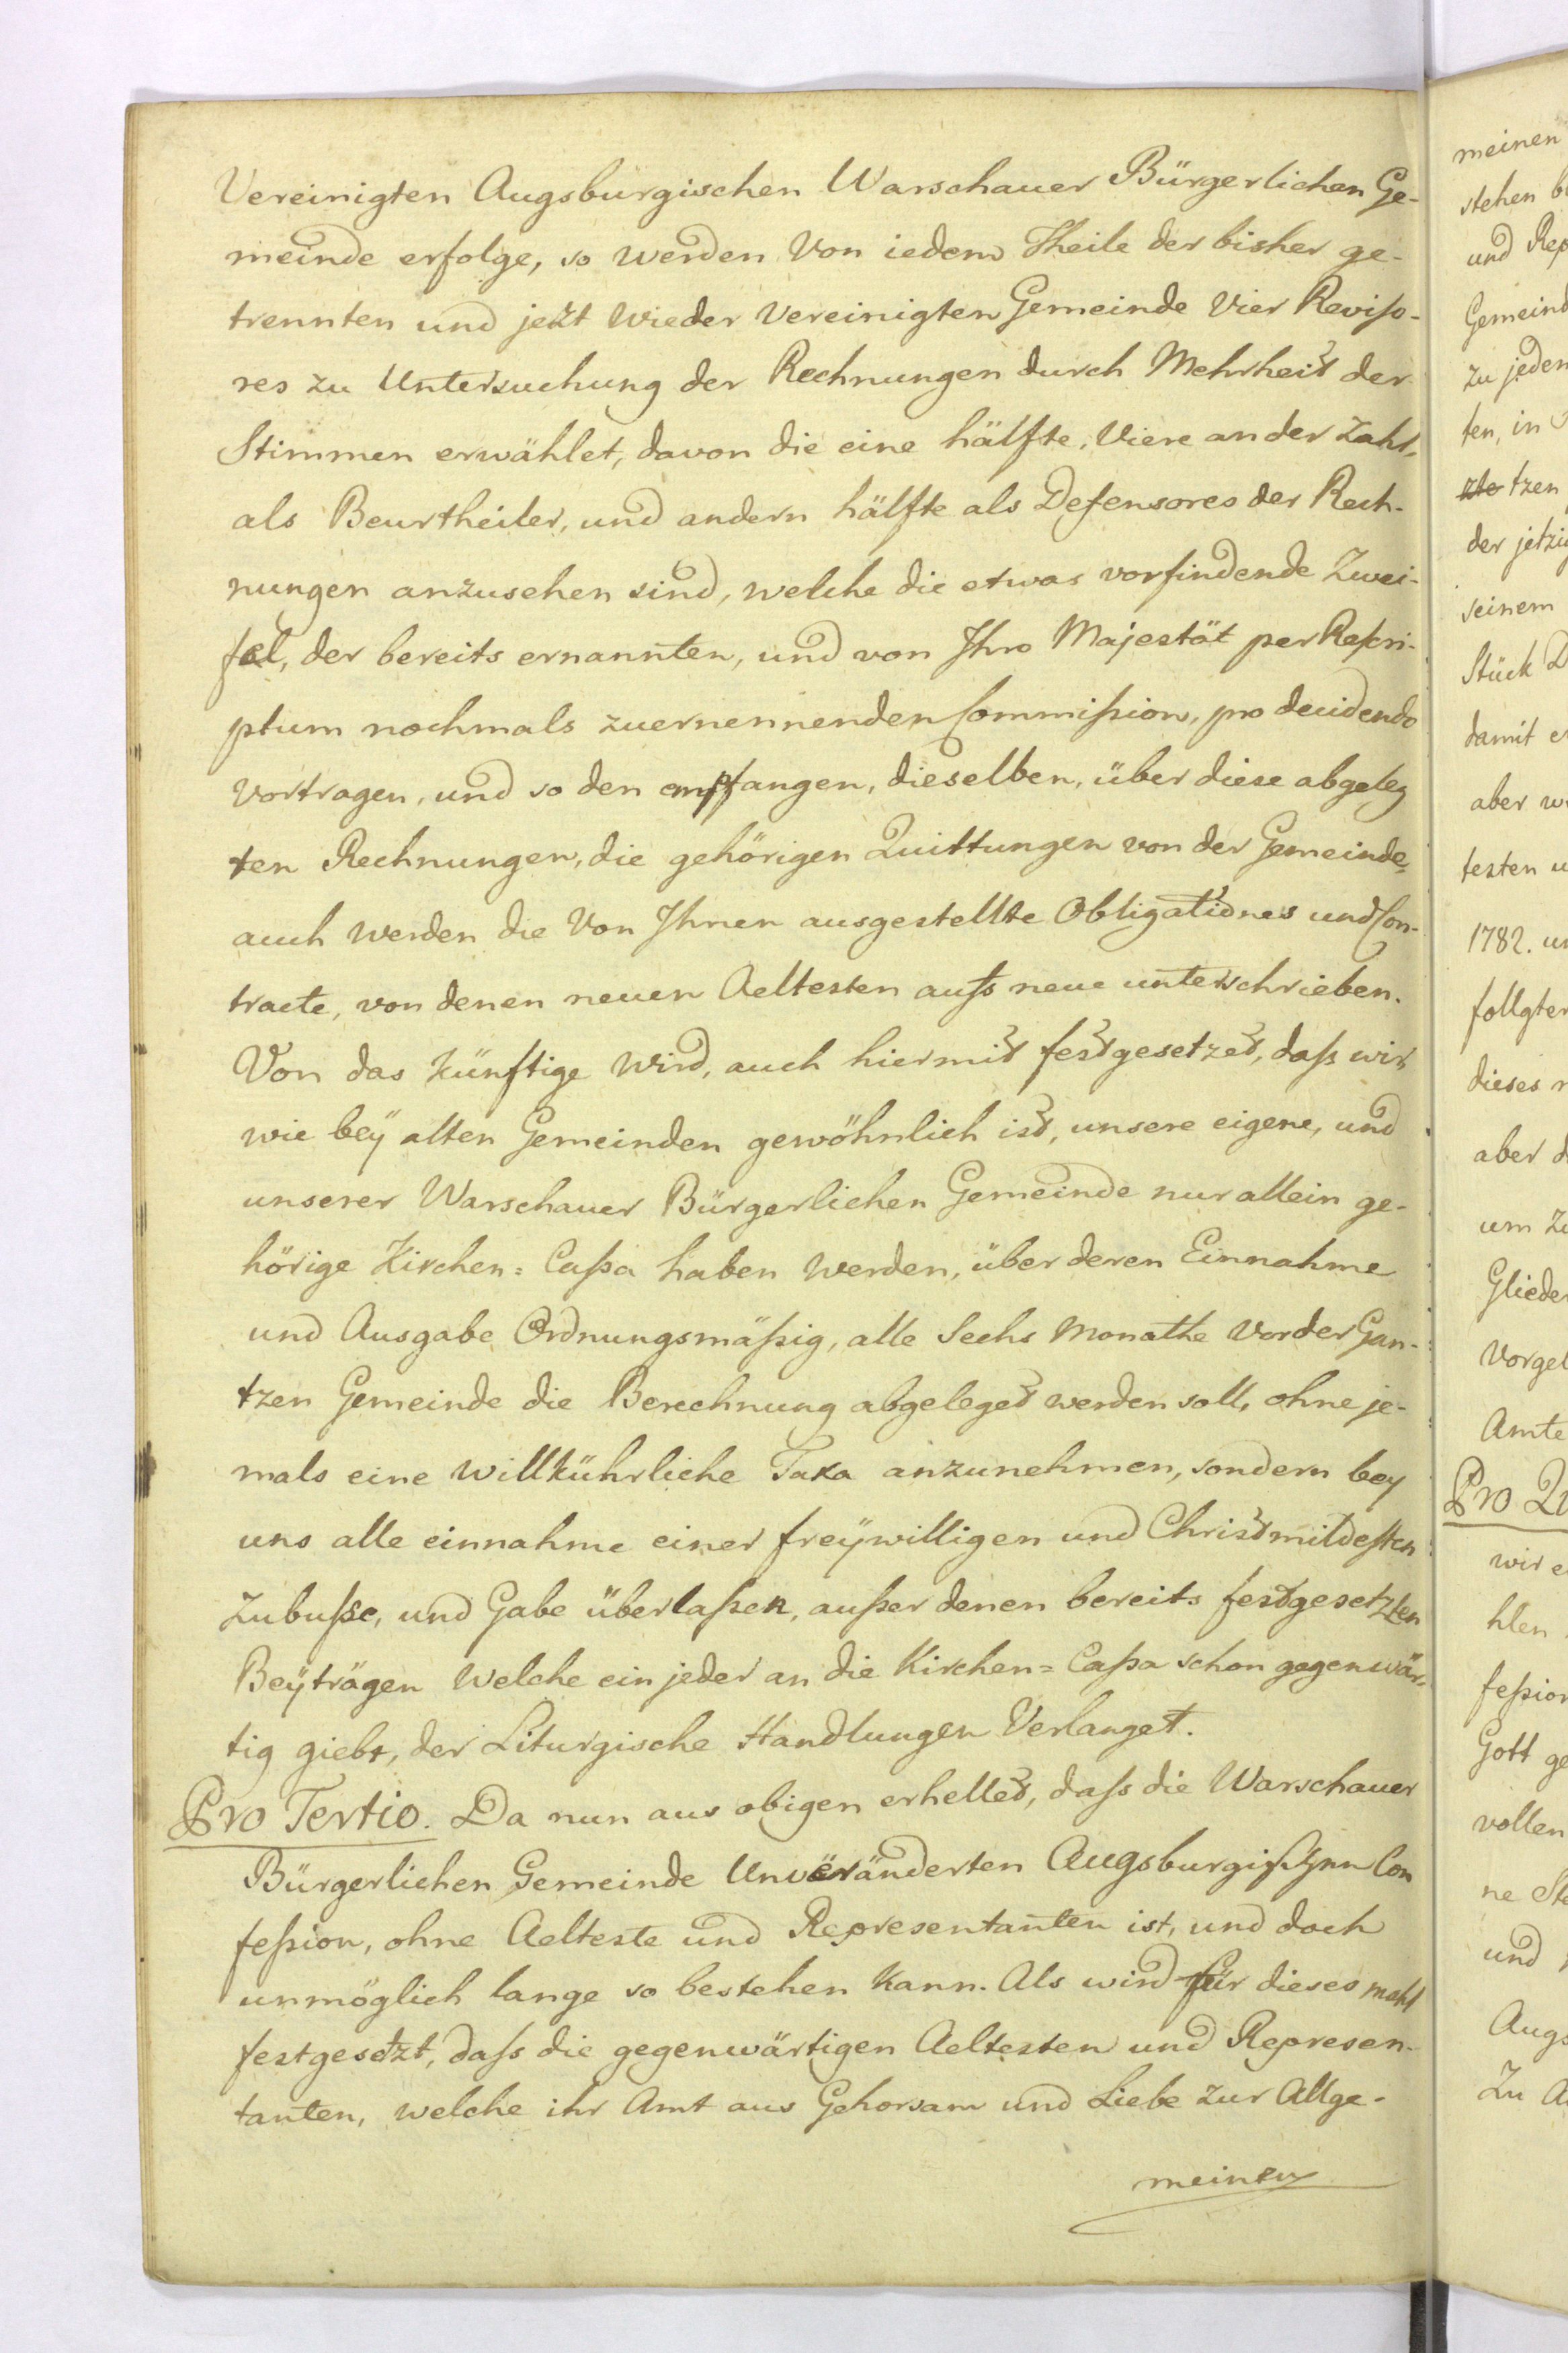 Vereinigten Augsburgischen Warschauer Bürgerlichen Ge-
meinde erfolge, so werden Von iedem Theile der bisher ge-
trennten und jetzt wieder Vereinigten Gemeinde Vier Reviso-
res zu Untersuchung der Rechnungen durch Mehrheit der
Stimmen erwählet, davon die eine hälfte, Viere an der Zahl,
als Beurtheiler, und andern hälfte als Defensores der Rech-
nungen anzusehen sind, welche die etwas vorfindende Zwei-
fel, der bereits ernannten, und von Ihro Majestät per Rescri-
ptum nochmals zuernennenden Commißion, pro decidendo
vortragen, und so den empfangen, dieselben, über diese abgeleg
ten Rechnungen, die gehörigen Quittungen von der Gemeinde,
auch werden die Von Ihnen ausgestellte Obligationes und Con-
tracte, von denen neuen Aeltesten aufs neue unterschrieben.
Von das künftige wird, auch hiermit festgesetzet, daß wir
wie beÿ alten Gemeinden gewöhnlich ist, unsere eigene, und
unserer Warschauer Bürgerlichen Gemeinde nur allein ge-
hörige Kirchen= Caßa haben werden, über deren Einnahme
und Ausgabe Ordnungsmäßig, alle Sechs Monathe Vor der Gan-
tzen Gemeinde die Berechnung abgeleget werden soll, ohne je-
mals eine Willkührliche Taxa anzunehmen, sondern bey
uns alle einnahme einer freÿwilligen und Christmildesten
Zubuße, und Gabe überlaßen, außer denen bereits festgesetzten
Beÿträgen Welche ein jeder an die Kirchen= Caßa schon gegenwär-
tig giebt, der Liturgische Handlungen Verlanget.
Pro Tertio. Da nun aus obigen erhellet, daß die Warschauer
Bürgerlichen Gemeinde Unveränderten Augsburgischen Con
feßion, ohne Aelteste und Representanten ist, und doch
unmöglich lange so bestehen kann. Als wird für dieses mahl
festgesetzt, daß die gegenwärtigen Aeltesten und Represen-
tanten, welche ihr Amt aus Gehorsam und Liebe zur Allge-
meinen
meinen
stehen
und Rep
Gemeind
zu jeden
ten, in
tzen
der jetzig
seinem
Stück
damit
aber
testen
1782.
follgten
dieses
aber
um
Glieder
Vorgel
Amte
Pro Qu
wir
hlen
feßion
Gott ge
vollen
ne
und
Augs
Zu